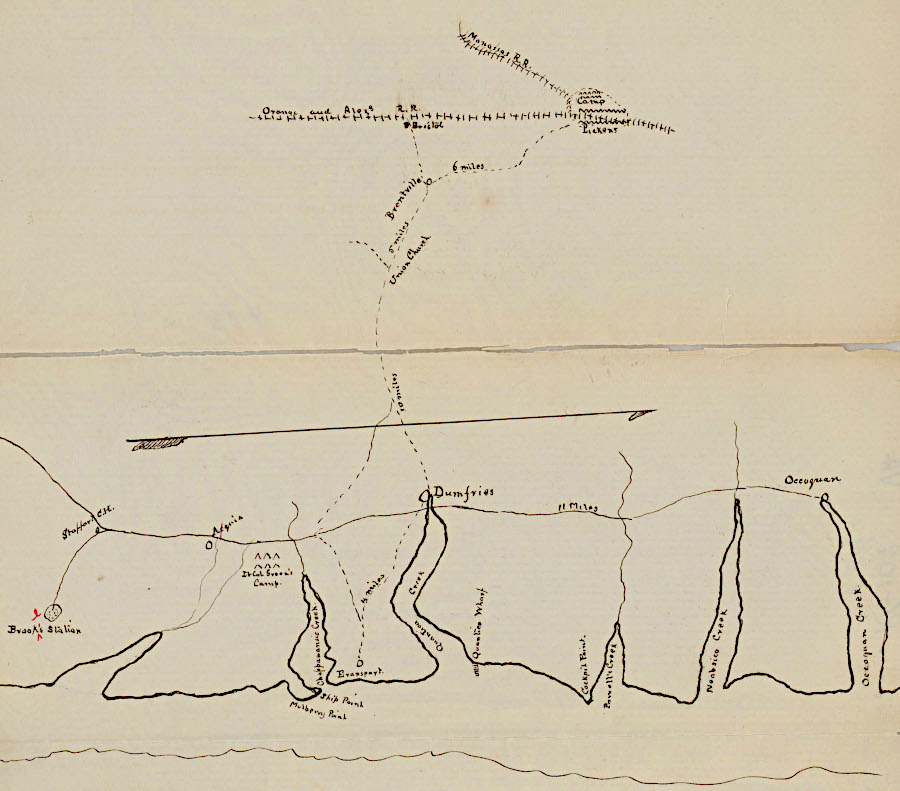 Manassas R.R.
Camp
Orange and Alexa R.R.
Bristol
Pickens
6 miles
Brentville
5 miles
Union Church
10 miles
Dumfries
Occoquan
Stafford C.H.
Aquia
11 Miles
Lt Col Green's
Camp.
Brook's Station
e
Chappawansic Creek
Evansport
Creek
Quantico
Quantico Wharf
Ship Point
Mulberry Point
Cockpit Point.
Powell's Creek
Neabsico Creek
Occoquan Creek